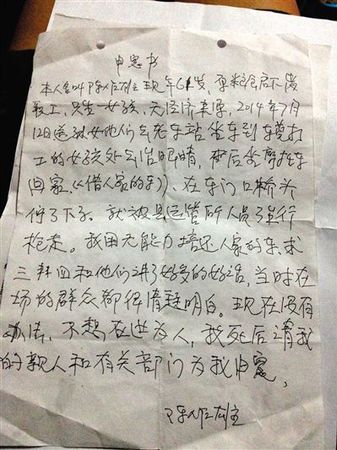 申冤书
本人名叫陈佐雄 现年61岁,系粮食局下岗
职工,只生一女孩,无经济来源,2014年7月
12日送我女他们去车站坐车到东莞打
工的女孩处去治眼睛,
回家(借人家的车),在车门口桥头
停了下了。就被县运管所人员强行
抢走。我因无能力赔还人家的车,求
三拜四和他们讲了好多的好话,当时在
场的群众都很清楚明白。现在没有
办法,不想在世为人,我死后请我
的亲人和有关部门为我申冤,
陈佐雄